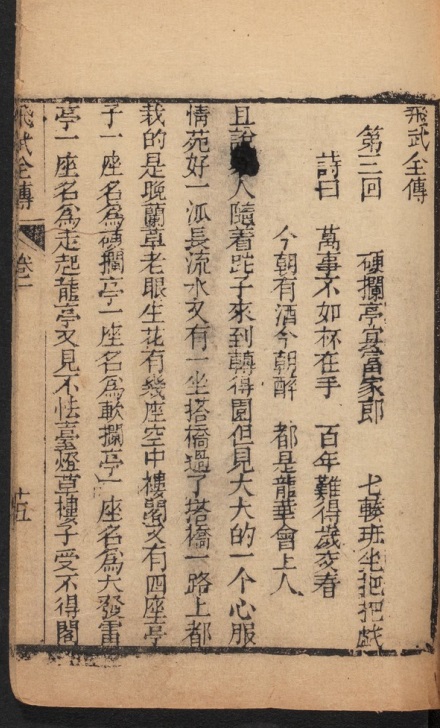 飛武全傳
第三回 硬攔亭宴富家郎 七班坐把把戯
詩曰 萬事不如杯在手 百年難得歲交春
今朝有酒今朝醉 都是龍華會上人
且說人隨着跎子來到轉得園但見大大的一个心服
情苑好一派長流水又有一坐搭橋過了塔橋一路上都
栽的是晚蘭草老眼生花有幾座空中樓閣又有四座亭
子一座名為硬攔亭一座名為軟攔亭一座名為大發雷
亭一座名為走起龍亭又見不怯臺燈草樓子受不得閣
飛武全傳 卷一 十五